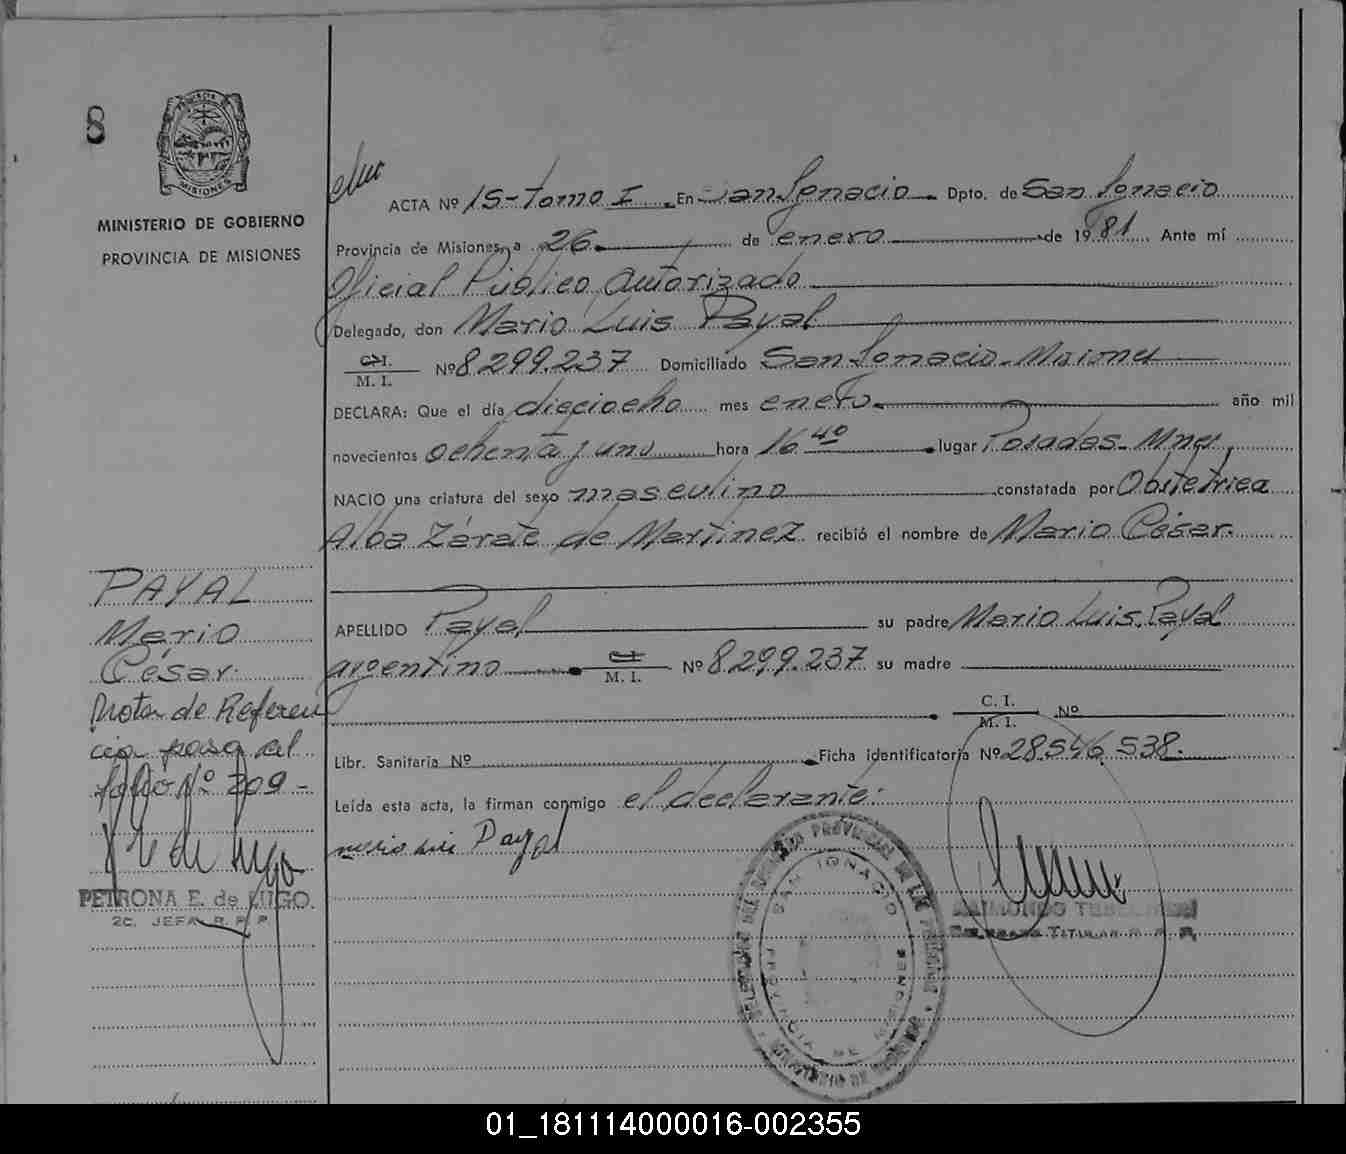 8
PROVINCIA
MISIONES
MINISTERIO DE GOBIERNO
PROVINCIA DE MISIONES
ACTA Nº 15-Tomo I. En San Ignacio. Dpto. de San Ignacio
Provincia de Misiones, a 26 de enero de 1981 Ante mí
Oficial Público Autorizado
Delegado, don Mario Luis Payal
C.I.
M. I. Nº 8.299.237 Domiciliado San Ignacio-Misiones
DECLARA: Que el día dieciocho mes enero año mil
novecientos ochenta y uno hora 16 40 lugar Posadas-Mnes.
NACIO una criatura del sexo masculino constatada por Obstetrica
Alba Zárate de Martinez recibió el nombre de Mario César.
APELLIDO Payal su padre Mario Luis Payal
argentino C.I. M. I. Nº 8.299.237 su madre
C. I.
M. I. Nº
Libr. Sanitaria Nº Ficha identificatoria Nº 28.546.538.
Leída esta acta, la firman conmigo el declarante.
mario luis Payal
PAYAL
Mario
César.
Nota de Referen
cia pasa al
folio Nº 209-
PETRONA E. de LUGO.
2C. JEFA R. P. P.
SAN IGNACIO
PROVINCIA DE MISIONES
RAIMUNDO
TITULAR R. P. P.
01_181114000016-002355